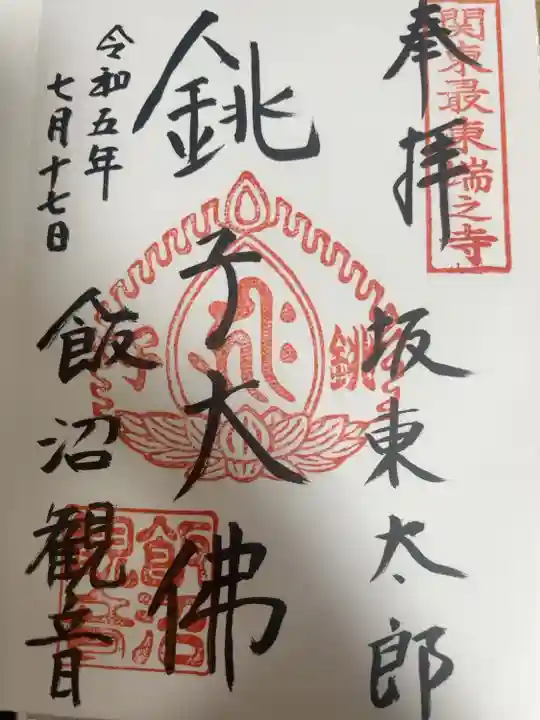 関東最東端之寺
奉拝
坂東太郎
銚子大佛
銚子
飯沼観音
令和五年
七月十七日
飯沼観音